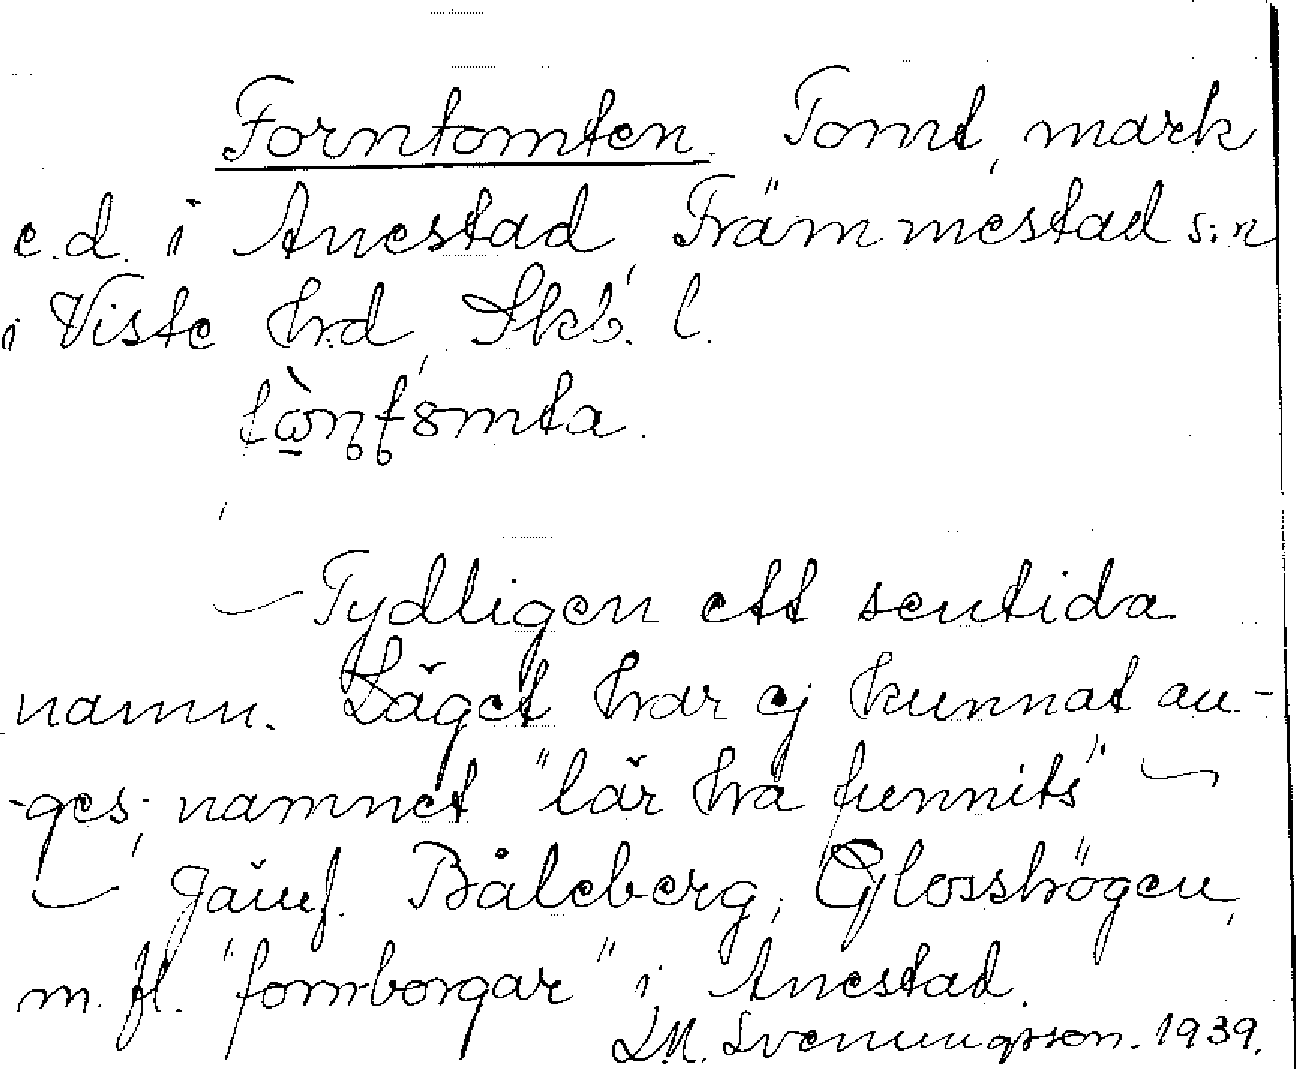 Forntomten. Tomt, mark
e.d. i Anestad, Främmestad s:n
i Viste hrd, Skb. l.

— Tydligen ett sentida
namn. Läget har ej kunnat an-
-ges; namnet "lär ha funnits" —
— Jämf. Båleberg, Glosshögen,
m. fl. "fornborgar" i Anestad.
L.M. Svenungsson. 1939.